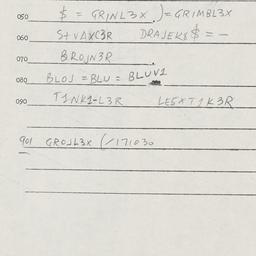 050 $ = GRINL3X )= GRIMBL3X
060 S+VAXC3R DRAJEK8$ = -
070 BROJN3R
080 BLOJ = BLU = BLUV1
090 T1NK1-L3R LESXT1K3R
901 GROJL3X (/171030